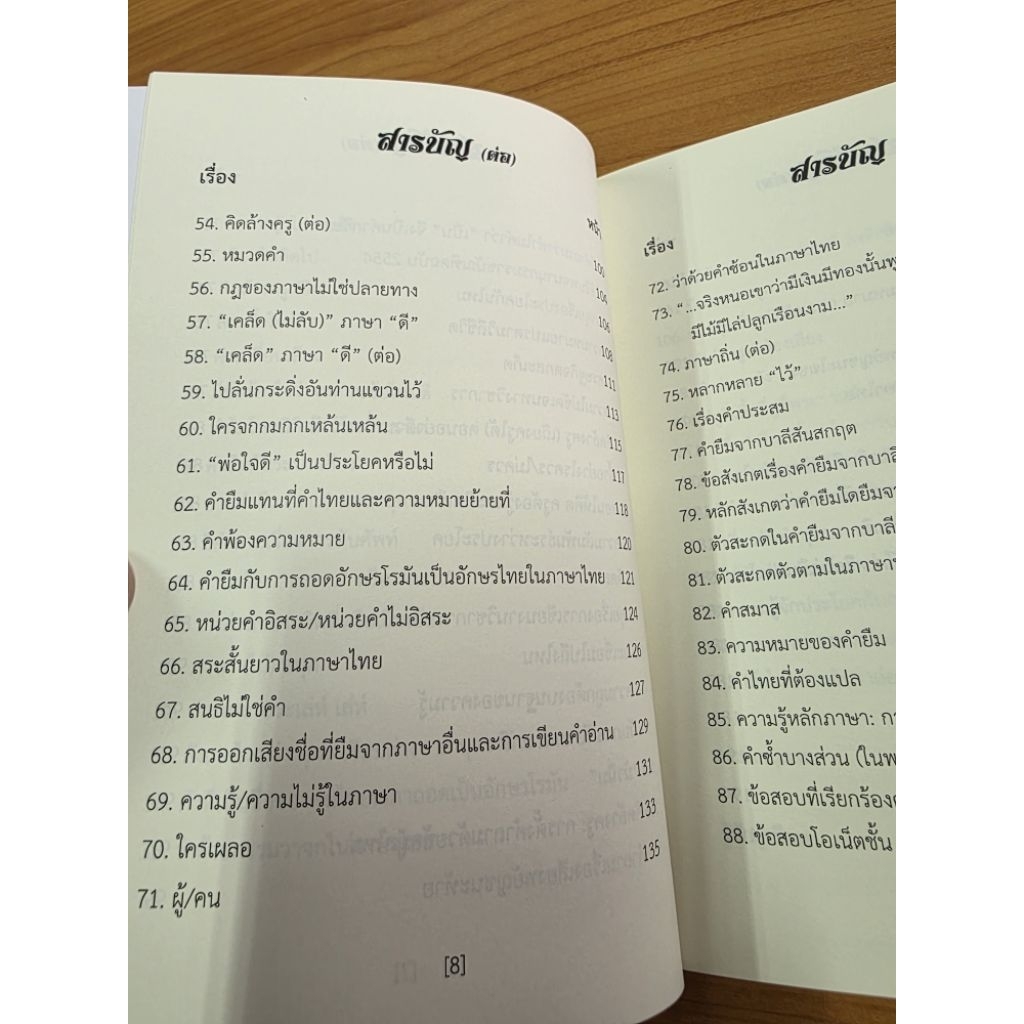 สารบัญ (ต่อ)
เรื่อง หน้า
54. คิดล้างครู (ต่อ)
55. หมวดคำ
56. กฎของภาษาไม่ใช่ปลายทาง 106
57. “เคล็ด (ไม่ลับ)” ภาษา “ดี” 108
58. “เคล็ด” ภาษา “ดี” (ต่อ) 111
59. ไปลั่นกระดิ่งอันท่านแขวนไว้ 113
60. ใครจกกมกกเหล้นเหล้น 115
61. “พ่อใจดี” เป็นประโยคหรือไม่ 117
62. คำยืมแทนที่คำไทยและความหมายย้ายที่ 118
63. คำพ้องความหมาย 120
64. คำยืมกับการถอดอักษรโรมันเป็นอักษรไทยในภาษาไทย 121
65. หน่วยคำอิสระ/หน่วยคำไม่อิสระ 124
66. สระสั้นยาวในภาษาไทย 126
67. สนธิไม่ใช่คำ 127
68. การออกเสียงชื่อที่ยืมจากภาษาอื่นและการเขียนคำอ่าน 129
69. ความรู้/ความไม่รู้ในภาษา 131
70. ใครเผลอ 133
71. ผู้/คน 135
[8]
สารบัญ
เรื่อง
72. ว่าด้วยคำซ้อนในภาษาไทย
73. “...จริงหนอเขาว่ามีเงินมีทองนั้นพู
มีไม้มีไล่ปลูกเรือนงาม...”
74. ภาษาถิ่น (ต่อ)
75. หลากหลาย “ไว้”
76. เรื่องคำประสม
77. คำยืมจากบาลีสันสกฤต
78. ข้อสังเกตเรื่องคำยืมจากบาลี
79. หลักสังเกตว่าคำยืมใดยืมจา
80. ตัวสะกดในคำยืมจากบาลี
81. ตัวสะกดตัวตามในภาษา
82. คำสมาส
83. ความหมายของคำยืม
84. คำไทยที่ต้องแปล
85. ความรู้หลักภาษา: กา
86. คำซ้ำบางส่วน (ในพ
87. ข้อสอบที่เรียกร้อง
88. ข้อสอบโอเน็ตชั้น